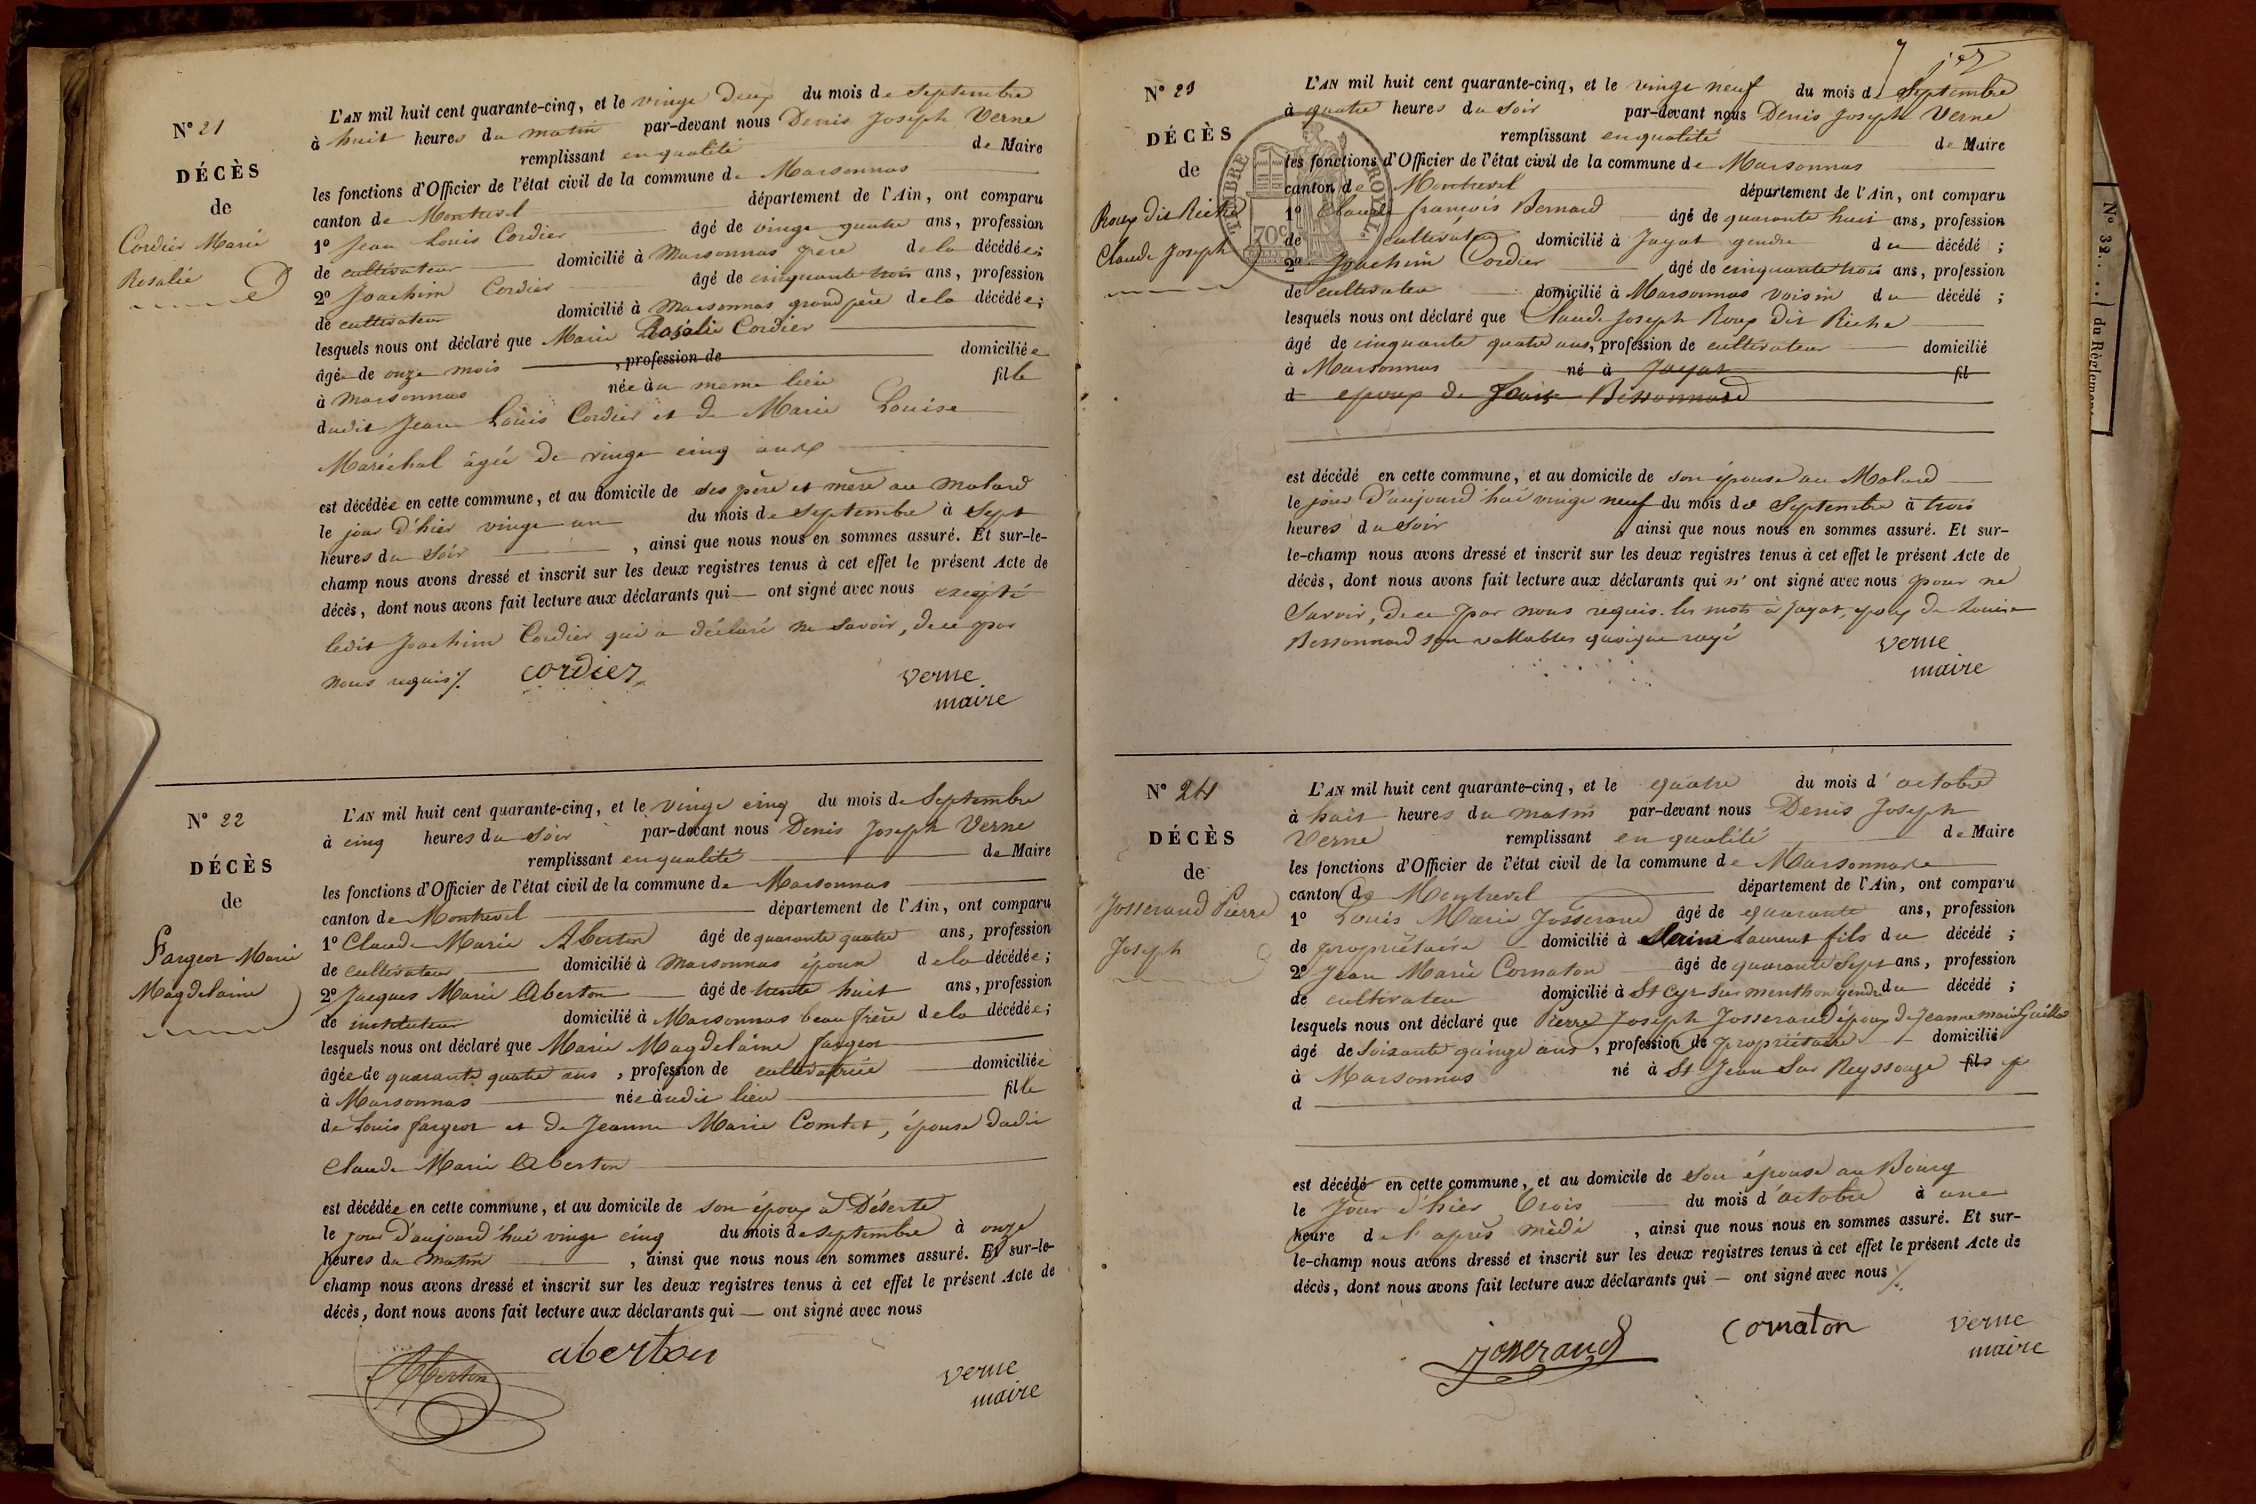 N° 21
DÉCÈS
de
Cordier Marie
Rosalie
L'AN mil huit cent quarante-cinq, et le vingt deux du mois de Septembre
à huit heures du matin par-devant nous Denis Joseph Verne
remplissant en qualité de Maire
les fonctions d'Officier de l'état civil de la commune de Marsonnas
canton de Montrevel département de l'Ain, ont comparu
1° Jean Louis Cordier âgé de vingt quatre ans, profession
de cultivateur domicilié à Marsonnas père de la décédée;
2° Joachim Cordier âgé de cinquante trois ans, profession
de cultivateur domicilié à Marsonnas grand père de la décédée;
lesquels nous ont déclaré que Marie Rosalie Cordier
âgée de onze mois , profession de domiciliée
à Marsonnas née au meme lieu fille
dudit Jean Louis Cordier et de Marie Louise
Maréchal âgée de vingt cinq ans
est décédée en cette commune, et au domicile de ses père et mère au Molard
le jour d'hier vingt un du mois de Septembre à Sept
heures du Soir , ainsi que nous nous en sommes assuré. Et sur-le-
champ nous avons dressé et inscrit sur les deux registres tenus à cet effet le présent Acte de
décès, dont nous avons fait lecture aux déclarants qui — ont signé avec nous excepté
ledit Joachim Cordier qui a déclaré ne savoir, de ce par
nous requis ./.
cordier
verne
maire
N° 22
DÉCÈS
de
Fargeot Marie
Magdelaine
L'AN mil huit cent quarante-cinq, et le vingt cinq du mois de Septembre
à cinq heures du Soir par-devant nous Denis Joseph Verne
remplissant en qualité de Maire
les fonctions d'Officier de l'état civil de la commune de Marsonnas
canton de Montrevel département de l'Ain, ont comparu
1° Claude Marie Aberton âgé de quarante quatre ans, profession
de cultivateur domicilié à Marsonnas époux de la décédée;
2° Jacques Marie Aberton âgé de trente huit ans, profession
de instituteur domicilié à Marsonnas beau frère de la décédée;
lesquels nous ont déclaré que Marie Magdelaine fargeot
âgée de quarante quatre ans , profession de cultivatrice domiciliée
à Marsonnas née audit lieu fille
de Louis fargeot et de Jeanne Marie Comtet, épouse dudit
Claude Marie Aberton
est décédée en cette commune, et au domicile de son époux à Déserte
le jour d'aujourd'hui vingt cinq du mois de Septembre à onze
heures du matin , ainsi que nous nous en sommes assuré. Et sur-le-
champ nous avons dressé et inscrit sur les deux registres tenus à cet effet le présent Acte de
décès, dont nous avons fait lecture aux déclarants qui — ont signé avec nous
Aberton
aberton
verne
maire
N° 23
DÉCÈS
de
Roux dit Riche
Claude Joseph
TIMBRE ROYAL
70c
L'AN mil huit cent quarante-cinq, et le vingt neuf du mois de Septembre
à quatre heures du Soir par-devant nous Denis Joseph Verne
remplissant en qualité de Maire
les fonctions d'Officier de l'état civil de la commune de Marsonnas
canton de Montrevel département de l'Ain, ont comparu
1° Claude françois Bernard âgé de quarante huit ans, profession
de cultivateur domicilié à Jayat gendre du décédé ;
2° Joachim Cordier âgé de cinquante trois ans, profession
de cultivateur domicilié à Marsonnas voisin du décédé ;
lesquels nous ont déclaré que Claude Joseph Roux dit Riche
âgé de cinquante quatre ans, profession de cultivateur domicilié
à Marsonnas né à Jayat fil
d époux de Louise Bessonnard
est décédé en cette commune, et au domicile de son épouse au Molard
le jour d'aujourd'hui vingt neuf du mois de Septembre à trois
heures du Soir , ainsi que nous nous en sommes assuré. Et sur-
le-champ nous avons dressé et inscrit sur les deux registres tenus à cet effet le présent Acte de
décès, dont nous avons fait lecture aux déclarants qui n' ont signé avec nous pour ne
Savoir, de ce par nous requis. les mots à Jayat, époux de Louise
Bessonnard son vallables quoique rayé
verne
maire
N° 24
DÉCÈS
de
Josserand Pierre
Joseph
L'AN mil huit cent quarante-cinq, et le quatre du mois d'octobre
à huit heures du matin par-devant nous Denis Joseph
Verne remplissant en qualité de Maire
les fonctions d'Officier de l'état civil de la commune de Marsonnas
canton de Montrevel département de l'Ain, ont comparu
1° Louis Marie Josserand âgé de quarante ans, profession
de propriétaire domicilié à Laurent fils du décédé ;
2° Jean Marie Cornaton âgé de quarante Sept ans, profession
de cultivateur domicilié à St Cyr Sur menthon gendre du décédé ;
lesquels nous ont déclaré que Pierre Joseph Josserand époux de Jeanne marie
âgé de Soixante quinze ans , profession de propriétaire domicilié
à Marsonnas né à St Jean Sur Reyssouze fils
d
est décédé en cette commune, et au domicile de son épouse au Bourg
le Jour d'hier trois du mois d'octobre à une
heure de l'après midi , ainsi que nous nous en sommes assuré. Et sur-
le-champ nous avons dressé et inscrit sur les deux registres tenus à cet effet le présent Acte de
décès, dont nous avons fait lecture aux déclarants qui — ont signé avec nous ./.
josserand
Cornaton
verne
maire
N° 32
du Règlement